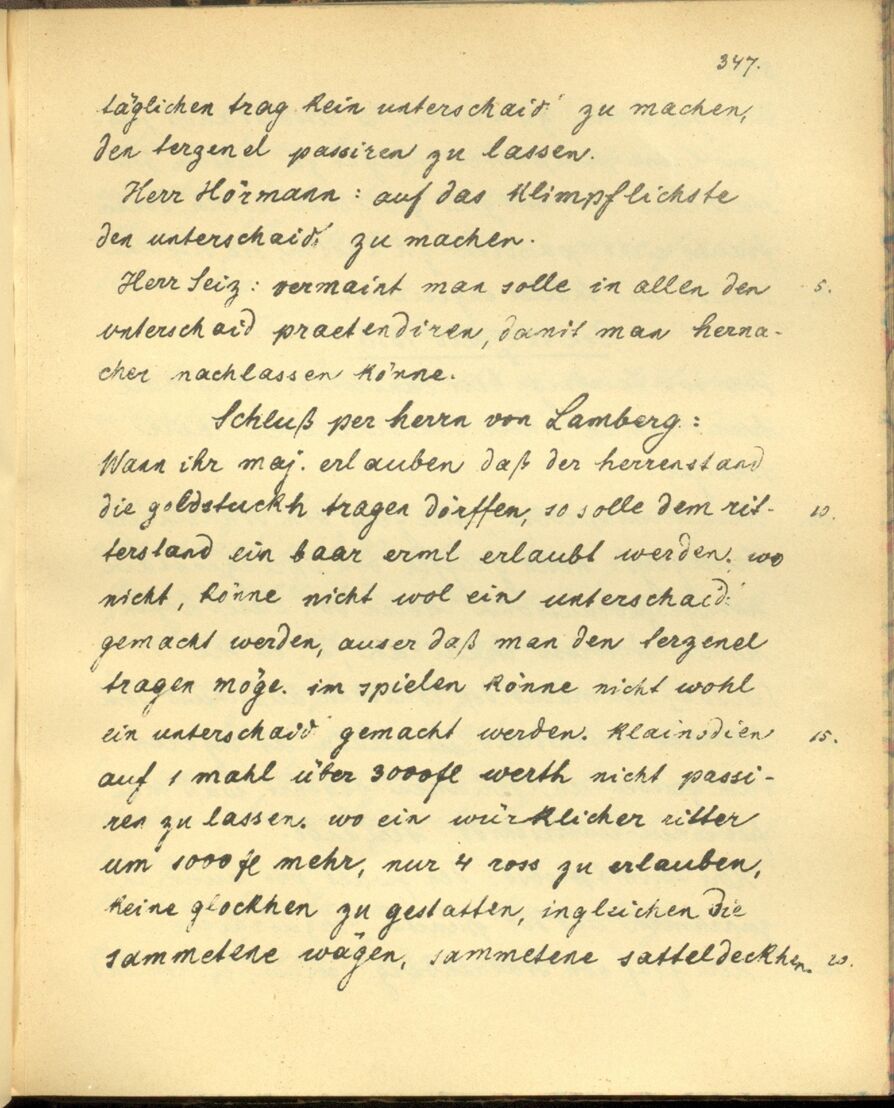 347.
täglichen trag kein unterschaid zu machen,
den terzenel passiren zu lassen.
Herr Hörmann: auf das klimpflichste
den unterschaid zu machen.
Herr Seiz: vermaint man solle in allen den 5.
unterschaid praetendiren, damit man herna-
cher nachlassen könne.
Schluß per herrn von Lamberg:
Wann ihr maj. erlauben daß der herrenstand
die goldstuckh tragen dörffen, so solle dem rit- 10.
terstand ein baar erml erlaubt werden. wo
nicht, könne nicht wol ein unterschaid
gemacht werden, auser daß man den terzenel
tragen möge. im spielen könne nicht wohl
ein unterschaid gemacht werden. klainodien 15.
auf 1 mahl über 3000fl werth nicht passi-
ren zu lassen. wo ein würklicher ritter
um 1000 fl mehr, nur 4 ross zu erlauben,
keine glockhen zu gestatten, ingleichen die
sammetene wägen, sammetene satteldeckhen. 20.